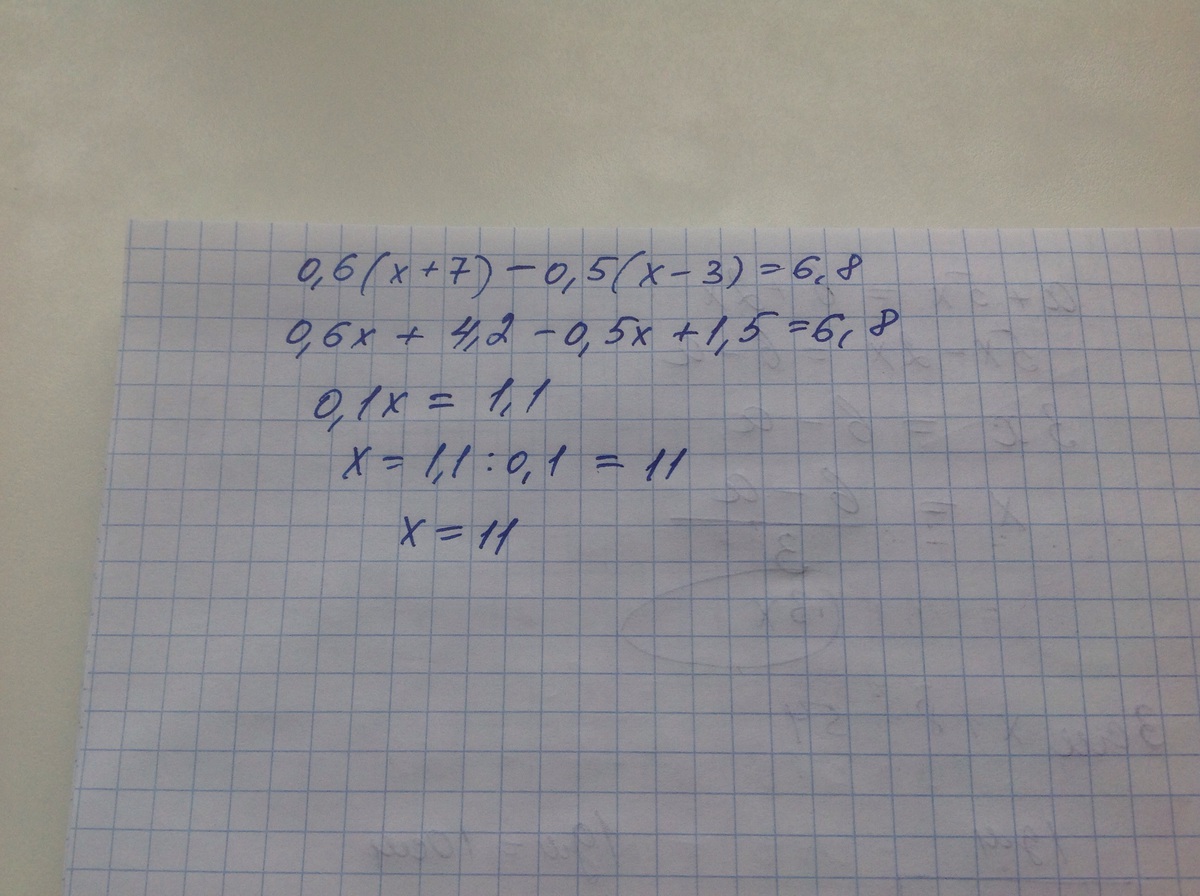 0,6(x+7)-0,5(x-3)=6,8
0,6x + 4,2 - 0,5x + 1,5 = 6,8
0,1x = 1,1
x = 1,1 : 0,1 = 11
x = 11